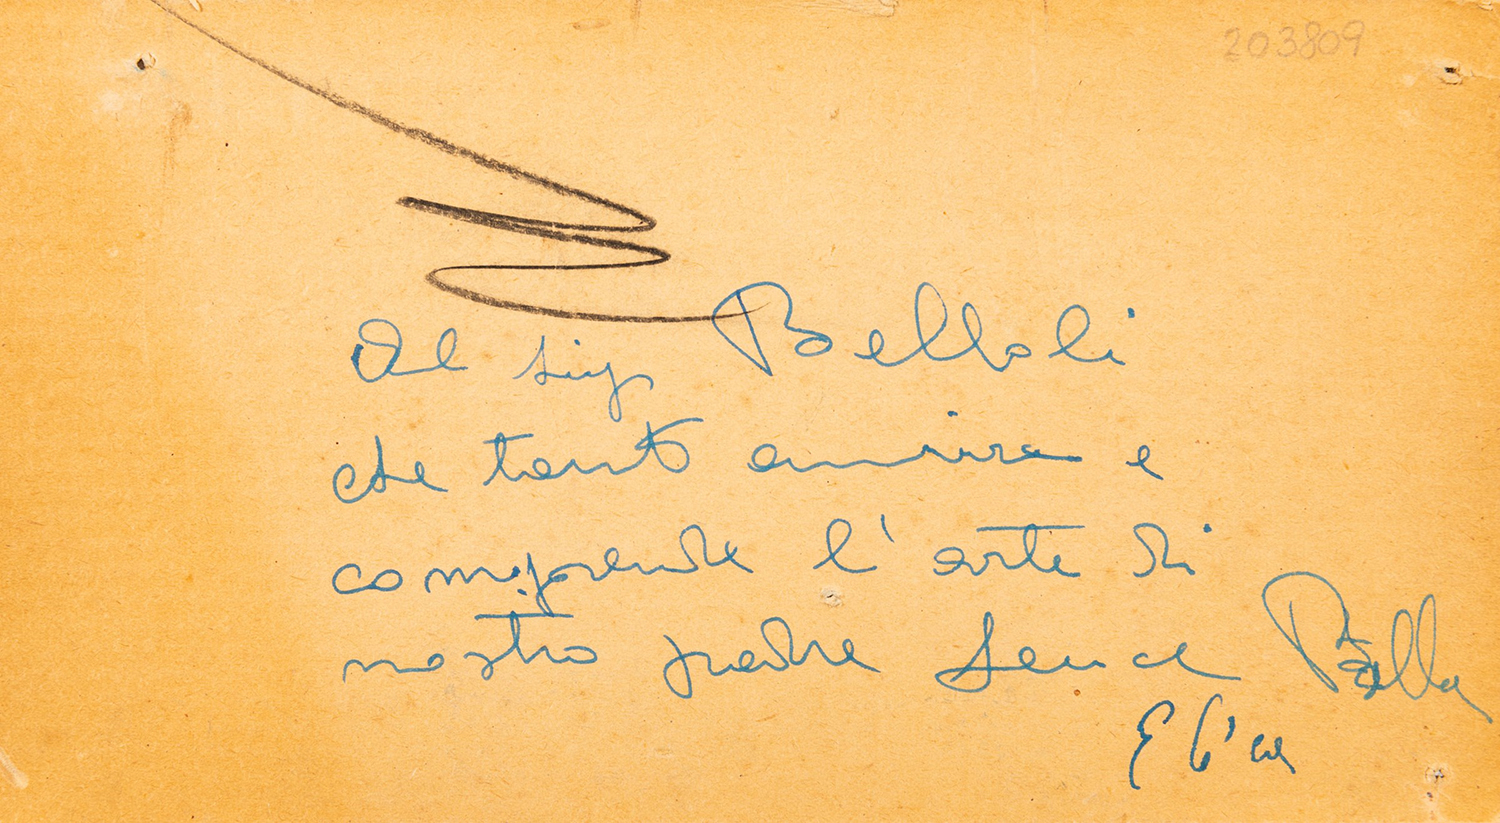 203809
Al sig Belloli
che tanto ammira e
comprende l'arte di
nostro padre Luce Balla
Elica